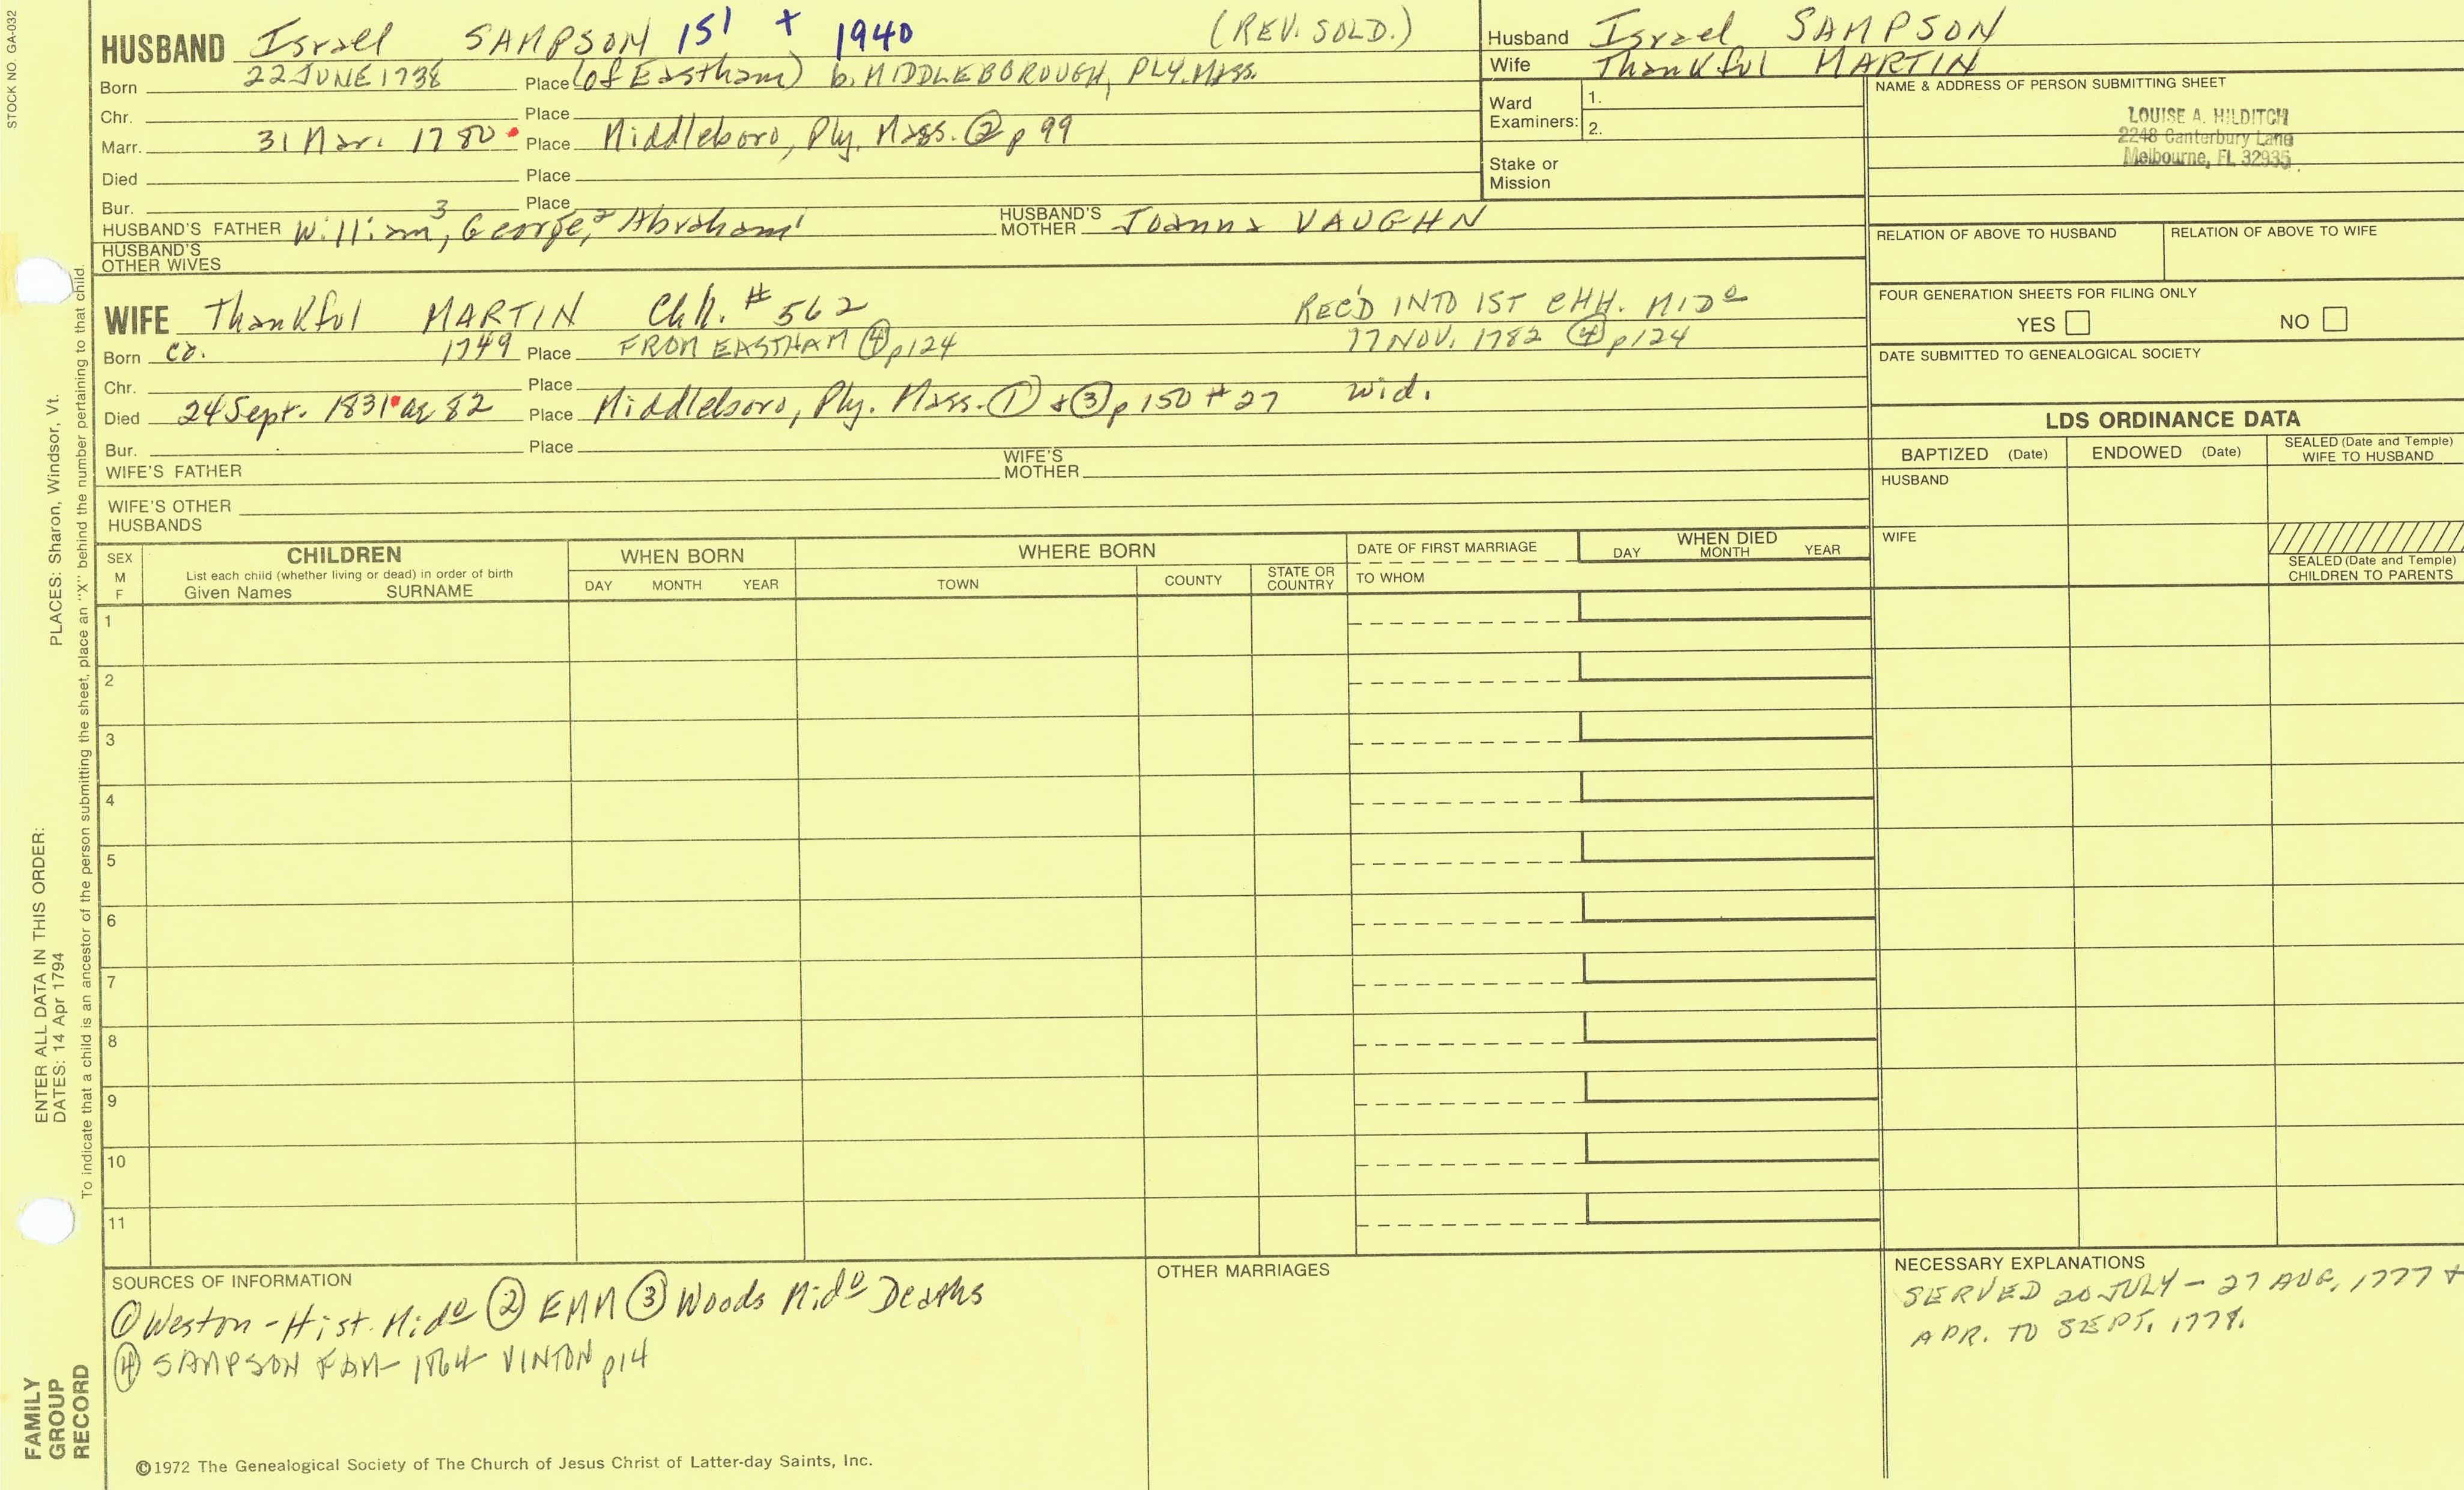 STOCK NO. GA-032
HUSBAND Israel SAMPSON 1st + 1940 (REV. SOLD.)
Born 22 JUNE 1738 Place (of Eastham) b. MIDDLEBOROUGH, PLY. MASS.
Chr. Place
Marr. 31 Mar. 1780 Place Middleboro, Ply. Mass. ② p 99
Died Place
Bur. Place
HUSBAND'S FATHER William,3 George,2 Abraham1 HUSBAND'S MOTHER Joanna VAUGHN
HUSBAND'S OTHER WIVES
WIFE Thankful MARTIN Chh. # 562 REC'D INTO 1ST CHH. MIDo
Born ca. 1749 Place FROM EASTHAM ④ p124 NOV. 1782 ④ p124
Chr. Place
Died 24 Sept. 1831 ae 82 Place Middleboro, Ply. Mass. ① + ③ p 150 # 27 wid.
Bur. Place
WIFE'S FATHER WIFE'S MOTHER
WIFE'S OTHER HUSBANDS
Husband Israel SAMPSON
Wife Thankful MARTIN
Ward Examiners: 1.
2.
Stake or Mission
NAME & ADDRESS OF PERSON SUBMITTING SHEET
LOUISE A. HILDITCH
2248 Canterbury Lane
Melbourne, FL 32935
RELATION OF ABOVE TO HUSBAND RELATION OF ABOVE TO WIFE
FOUR GENERATION SHEETS FOR FILING ONLY
YES NO
DATE SUBMITTED TO GENEALOGICAL SOCIETY
LDS ORDINANCE DATA
BAPTIZED (Date) ENDOWED (Date) SEALED (Date and Temple) WIFE TO HUSBAND
HUSBAND
WIFE
SEALED (Date and Temple) CHILDREN TO PARENTS
SEX M F
CHILDREN
List each child (whether living or dead) in order of birth
Given Names SURNAME
WHEN BORN
DAY MONTH YEAR
WHERE BORN
TOWN COUNTY STATE OR COUNTRY
DATE OF FIRST MARRIAGE
TO WHOM
WHEN DIED
DAY MONTH YEAR
1
2
3
4
5
6
7
8
9
10
11
SOURCES OF INFORMATION
① Weston - Hist. Mido ② EMM ③ Woods Mido Deaths
④ SAMPSON FAM- 1864 VINTON p14
OTHER MARRIAGES
NECESSARY EXPLANATIONS
SERVED 20 JULY - 27 AUG, 1777 +
APR. TO SEPT. 1778.
©1972 The Genealogical Society of The Church of Jesus Christ of Latter-day Saints, Inc.
FAMILY
GROUP
RECORD
ENTER ALL DATA IN THIS ORDER:
DATES: 14 Apr 1794
PLACES: Sharon, Windsor, Vt.
To indicate that a child is an ancestor of the person submitting the sheet, place an "X" behind the number pertaining to that child.